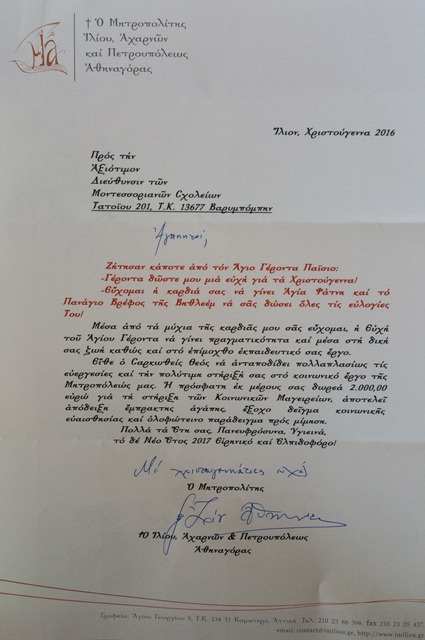 † Ὁ Μητροπολίτης
Ἰλίου, Ἀχαρνῶν
καί Πετρουπόλεως
Ἀθηναγόρας
Ἴλιον, Χριστούγεννα 2016
Πρός τήν
Ἀξιότιμον
Διεύθυνσιν τῶν
Μοντεσσοριανῶν Σχολείων
Τατοΐου 201, Τ.Κ. 13677 Βαρυμπόμπην
Ἀγαπητοί,
Ζήτησαν κάποτε ἀπό τόν Ἅγιο Γέροντα Παΐσιο:
-Γέροντα δῶστε μου μιά εὐχή γιά τά Χριστούγεννα!
-Εὔχομαι ἡ καρδιά σας νά γίνει Ἁγία Φάτνη καί τό
Πανάγιο Βρέφος τῆς Βηθλεέμ νά σᾶς δώσει ὅλες τίς εὐλογίες
Του!
Μέσα ἀπό τά μύχια τῆς καρδιᾶς μου σᾶς εὔχομαι, ἡ Εὐχή
τοῦ Ἁγίου Γέροντα νά γίνει πραγματικότητα καί μέσα στή δική
σας ζωή καθώς καί στό ἐπίμοχθο ἐκπαιδευτικό σας ἔργο.
Εἴθε ὁ Σαρκωθείς Θεός νά ἀνταποδίδει πολλαπλασίως τίς
εὐεργεσίες καί τήν πολύτιμη στήριξή σας στό κοινωνικό ἔργο τῆς
Μητροπόλεώς μας. Ἡ πρόσφατη ἐκ μέρους σας δωρεά 2.000,00
εὐρώ γιά τή στήριξη τῶν Κοινωνικῶν Μαγειρείων, ἀποτελεῖ
ἀπόδειξη ἔμπρακτης ἀγάπης, ἔξοχο δεῖγμα κοινωνικῆς
εὐαισθησίας καί ὁλοφώτεινο παράδειγμα πρός μίμηση.
Πολλά τά Ἔτη σας, Πανευφρόσυνα, Ὑγιεινά,
τό δέ Νέο Ἔτος 2017 Εἰρηνικό καί Ἐλπιδοφόρο!
Μέ χριστουγεννιάτικες εὐχές
Ὁ Μητροπολίτης
†Ὁ Ἰλίου, Ἀχαρνῶν & Πετρουπόλεως
Ἀθηναγόρας
Γραφεῖα: Ἁγίου Γεωργίου 5, Τ.Κ. 134 51 Καματερό, Ἀττική, Τηλ. 210 23 88 398, fax 210 23 25 437
email: contact@imilion.gr, http://www.imilion.gr